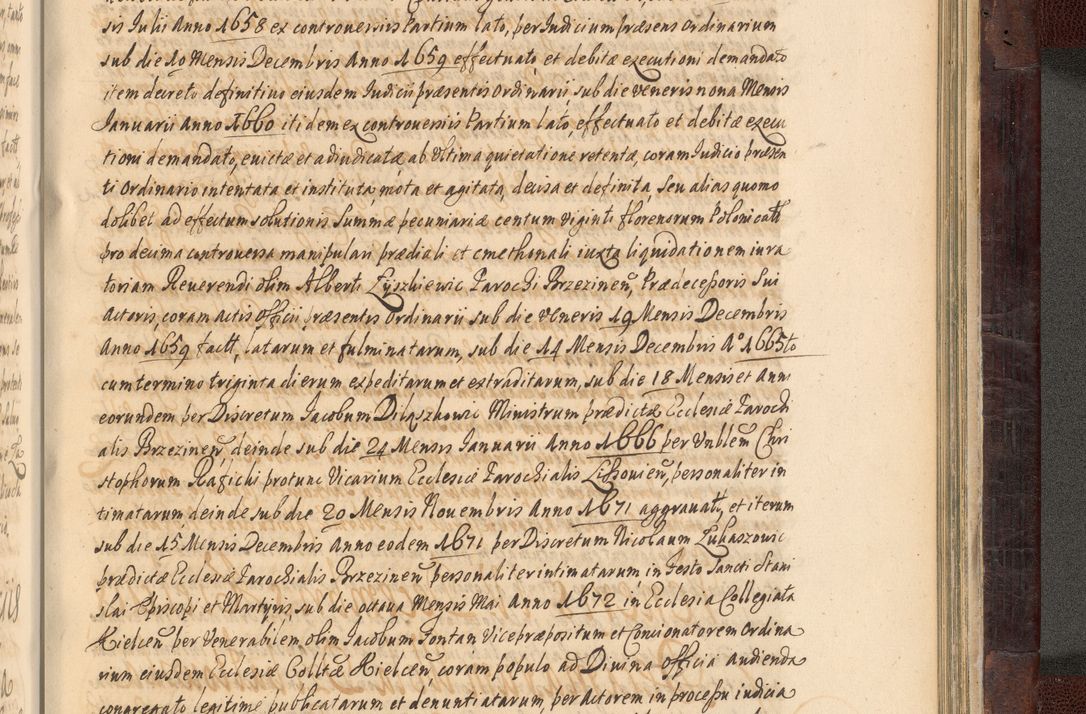 sis Iulii Anno 1658 ex controversiis Partium lato, per Iudicium præsens ordinarium
sub die 10 Mensis Decembris Anno 1659 effectuato et debitæ executioni demandato
item decreto definitivo eiusdem Iudicii præsentis ordinarii sub die veneris nona Mensis
Ianuarii Anno 1660 itidem ex controversiis Partium lato, effectuato et debitæ execu
tioni demandato, evictæ et adiudicatæ, ab ultima quietatione retentæ, coram Iudicio præsen
ti ordinario intentata et instituta, mota et agitata, decisa et definita, seu alias quomo
dolibet ad effectum solutionis summæ pecuniariæ centum viginti florenorum Polonicalt
pro decima controversa manipulari prædiali et cmethonali iuxta liquidationem iura
toriam Reverendi olim Alberti Łyszkiewic Parochi Brzezinen̄, Prædecessoris Sui
Actoris, coram actis officii præsentis ordinarii sub die veneris 19 Mensis Decembris
Anno 1659 fact, latarum et fulminatarum, sub die 14 Mensis Decembris A° 1665to
cum termino triginta dierum expeditarum et extraditarum, sub die 18 Mensis et Anni
eorundem per Discretum Iacobum Ministrum prædictæ Ecclesiæ Parochi
alis Brzezinen̄ deinde sub die 24 Mensis Ianuarii Anno 1666 per Vnblem Chri
stophorum protunc Vicarium Ecclesiæ Parochialis personaliter in
timatarum deinde sub die 20 Mensis Novembris Anno 1671 aggravat, et iterum
sub die 15 Mensis Decembris anno eodem 1671 per Discretum Nicolaum Łukaszowic
prædictæ Ecclesiæ Parochialis Brzezinen̄ personaliter intimatarum in Festo Sancti Stani
slai Episcopi et Martyris, sub die octava Mensis Mai Anno 1672 in Ecclesia Collegiata
Kielcen̄ per Venerabilem olim Iacobum Fontan Vicepræpositum et Concionatorem ordina
rium eiusdem Ecclesiæ Colltæ Kielcen̄, coram populo ad Divina officia audienda
congregato legitime publicatarum et denuntiatarum, per Actorem in processu iudicia